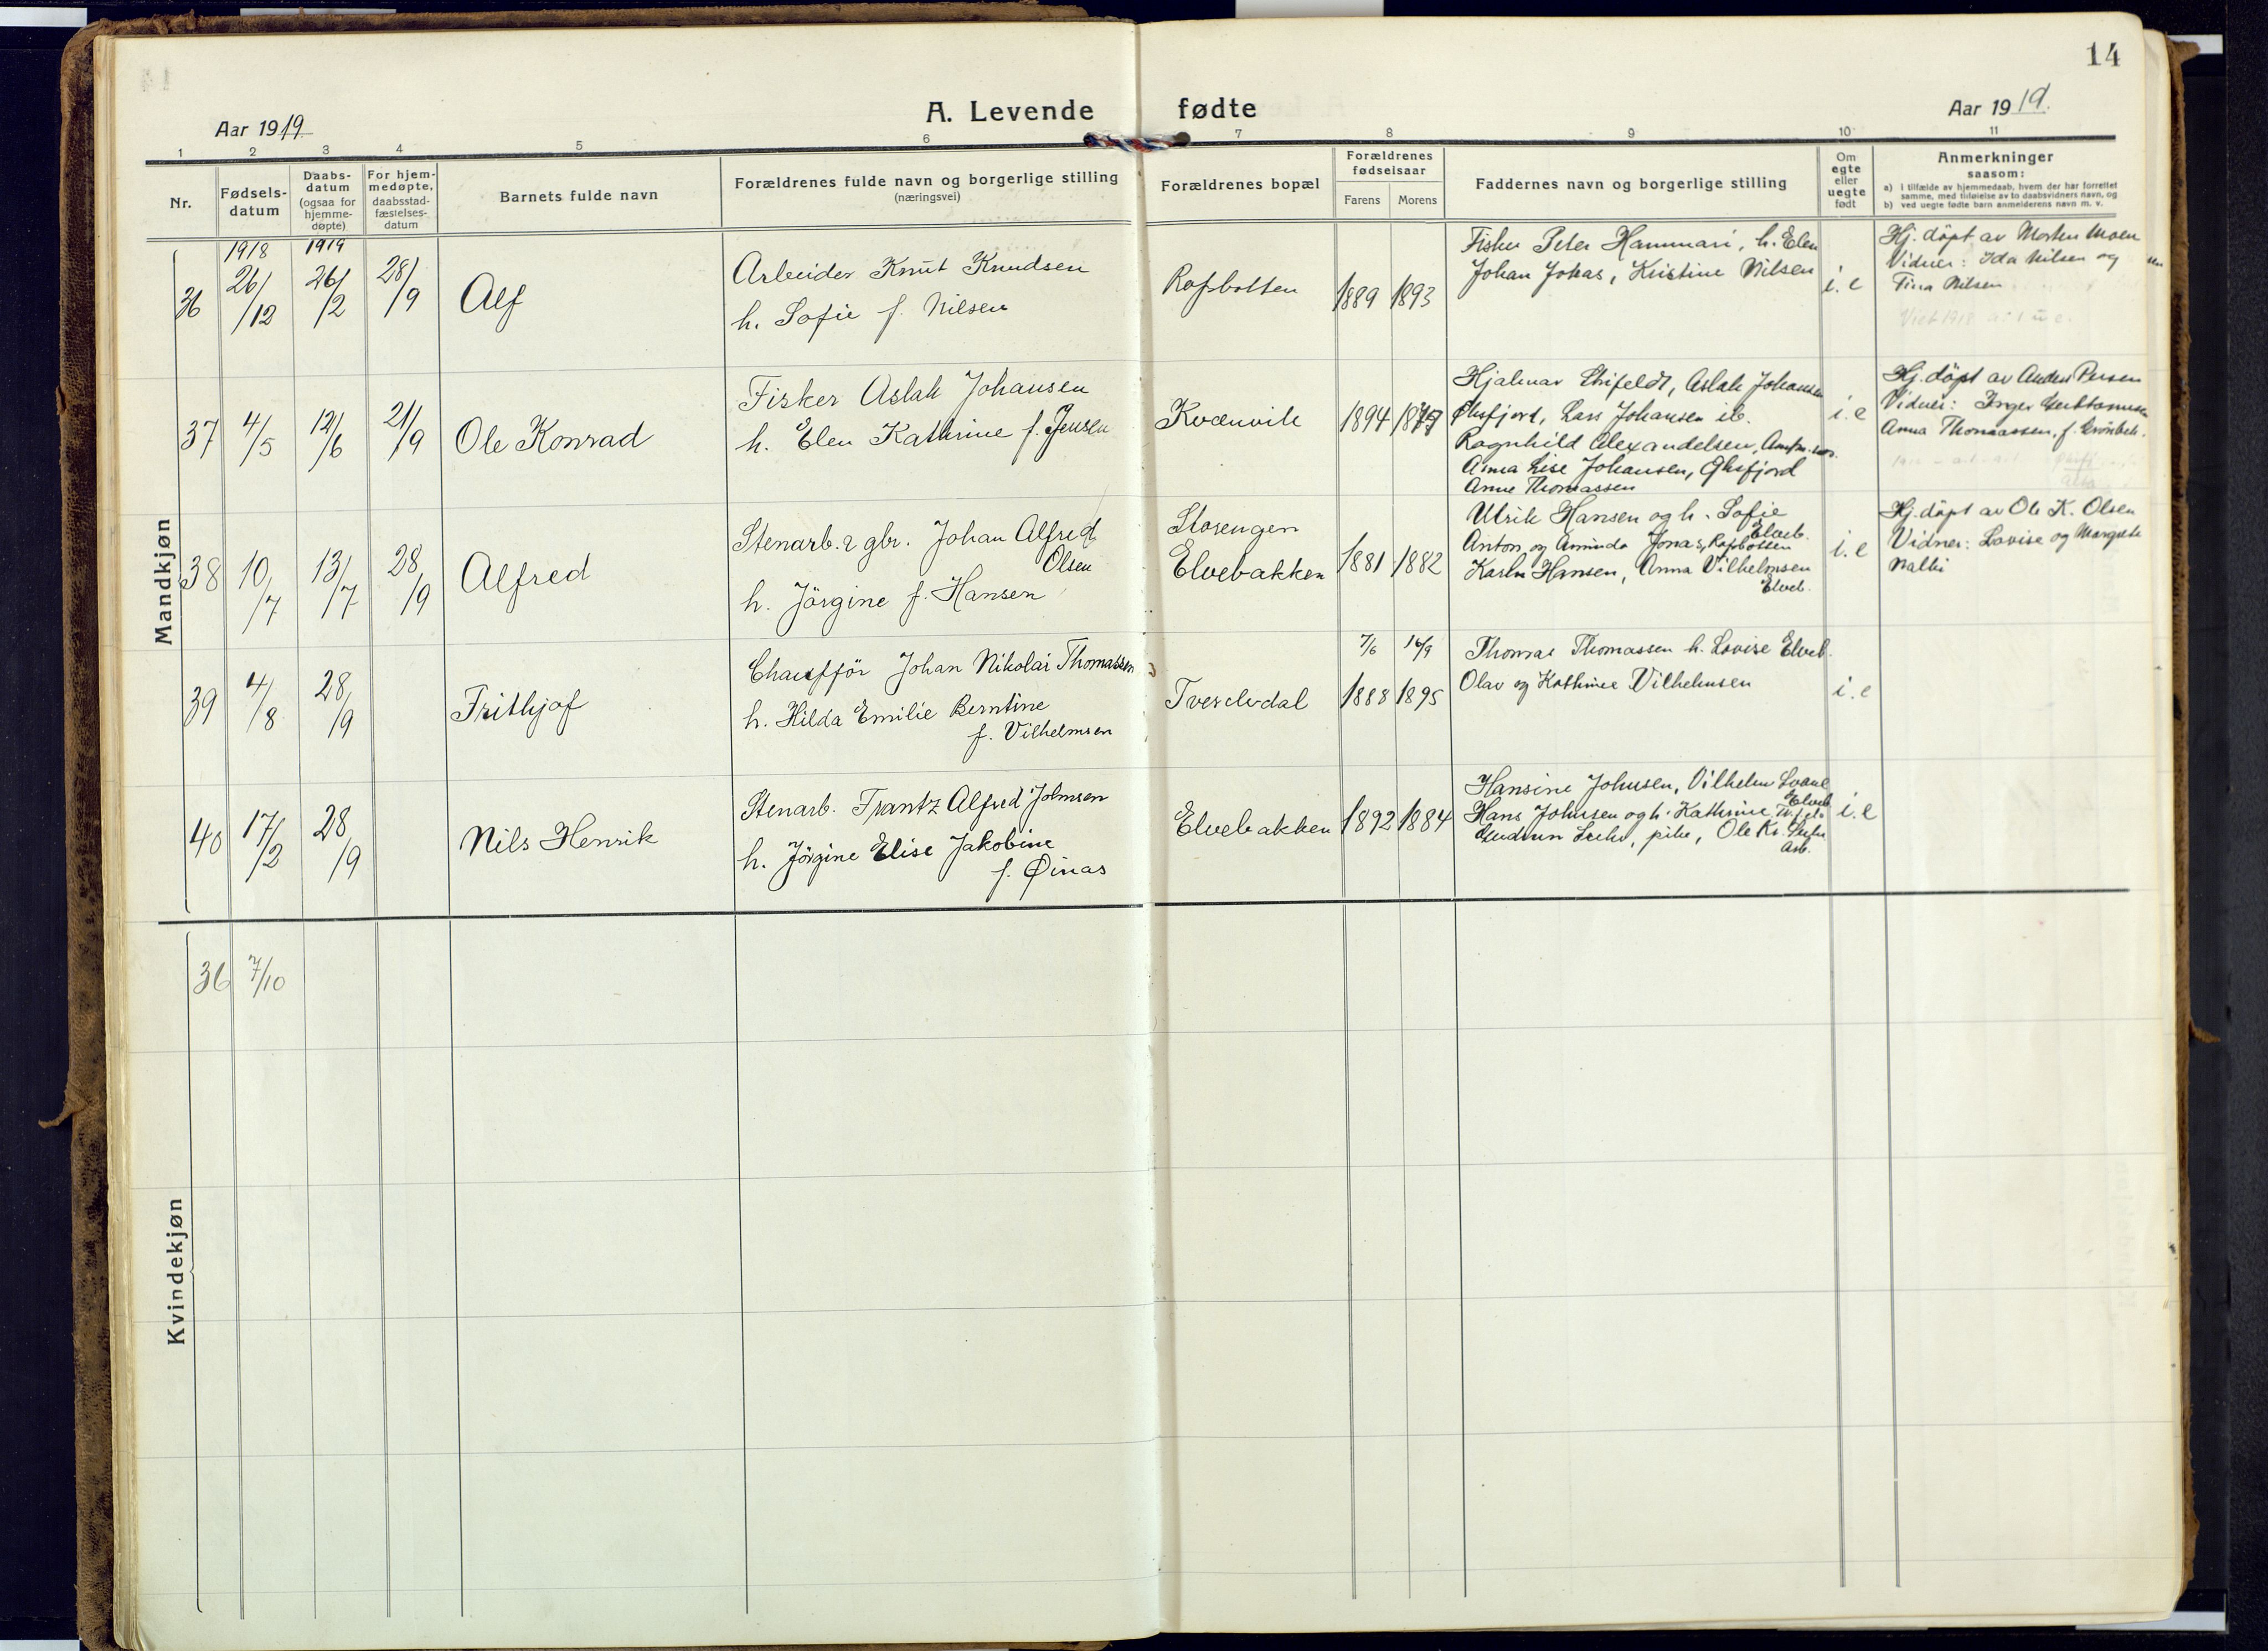 14
A. Levende fødte
Aar 1919
Aar 1919.
1 2 3 4 5 6 7 8 9 10 11
Nr.
Fødselsdatum
Daabsdatum (ogsaa for hjemmedøpte)
For hjemmedøpte, daabsstadfæstelsesdatum
Barnets fulde navn
Forældrenes fulde navn og borgerlige stilling (næringsvei)
Forældrenes bopæl
Forældrenes fødselsaar
Farens Morens
Faddernes navn og borgerlige stilling
Om egte eller uegte født
Anmerkninger saasom:
a) i tilfælde av hjemmedaab, hvem der har forrettet samme, med tilføielse av to daabsvidners navn, og
b) ved uegte fødte barn anmelderens navn m. v.
Mandkjøn
1918 1919
36 26/12 26/2 28/9 Alf
Arbeider Knut Knudsen
h. Sofie f. Nilsen
Rafsbotten 1889 1893
Fisker Peter Hammari, h. Elen
Johan Johas, Kristine Nilsen
i. e
Hj. döpt av Morten Moen
Vidner: Ida Nilsen og
Tina Nilsen
37 4/5 12/6 21/9 Ole Konrad
Fisker Aslak Johansen
h. Elen Kathrine f. Jensen
Kvænvik 1894
Hjalmar Aslak Johansen
Lars Johansen ib.
Ragnhild
Anna Lise Johansen,
Anne Thomassen
i. e
Hj. döpt av Anders Persen
Vidner: Inger
Anna Thomassen, f.
38 10/7 13/7 28/9 Alfred
Stenarb. & gbr. Johan Alfred
Olsen
h. Jörgine f. Hansen
Storengen
Elvebakken 1881 1882
Ulrik Hansen og h. Sofie
Elveb.
Anton og Jonas, Rafsbotten
Hansen, Anna Vilhelmsen
Elveb.
i. e
Hj. döpt av Ole K. Olsen
Vidner: Lovise og Margrete
39 4/8 28/9 Frithjof
Chaufför Johan Nikolai Thomassen
h. Hilda Emilie Berntine
f. Vilhelmsen
Tverelvdal 7/6 1888 16/9 1895
Thomas Thomassen h. Lovise Elveb.
Olav og Kathrine Vilhelmsen
i. e
40 17/2 28/9 Nils Henrik
Stenarb. Frantz Alfred Johnsen
h. Jörgine Elise Jakobine
f. Øinas
Elvebakken 1892 1884
Hansine Johnsen, Vilhelm
Elveb
Hans Johnsen og h. Kathrine
Gudrun pike, Ole Kr.
Arb.
i. e
Kvindekjøn
36 7/10